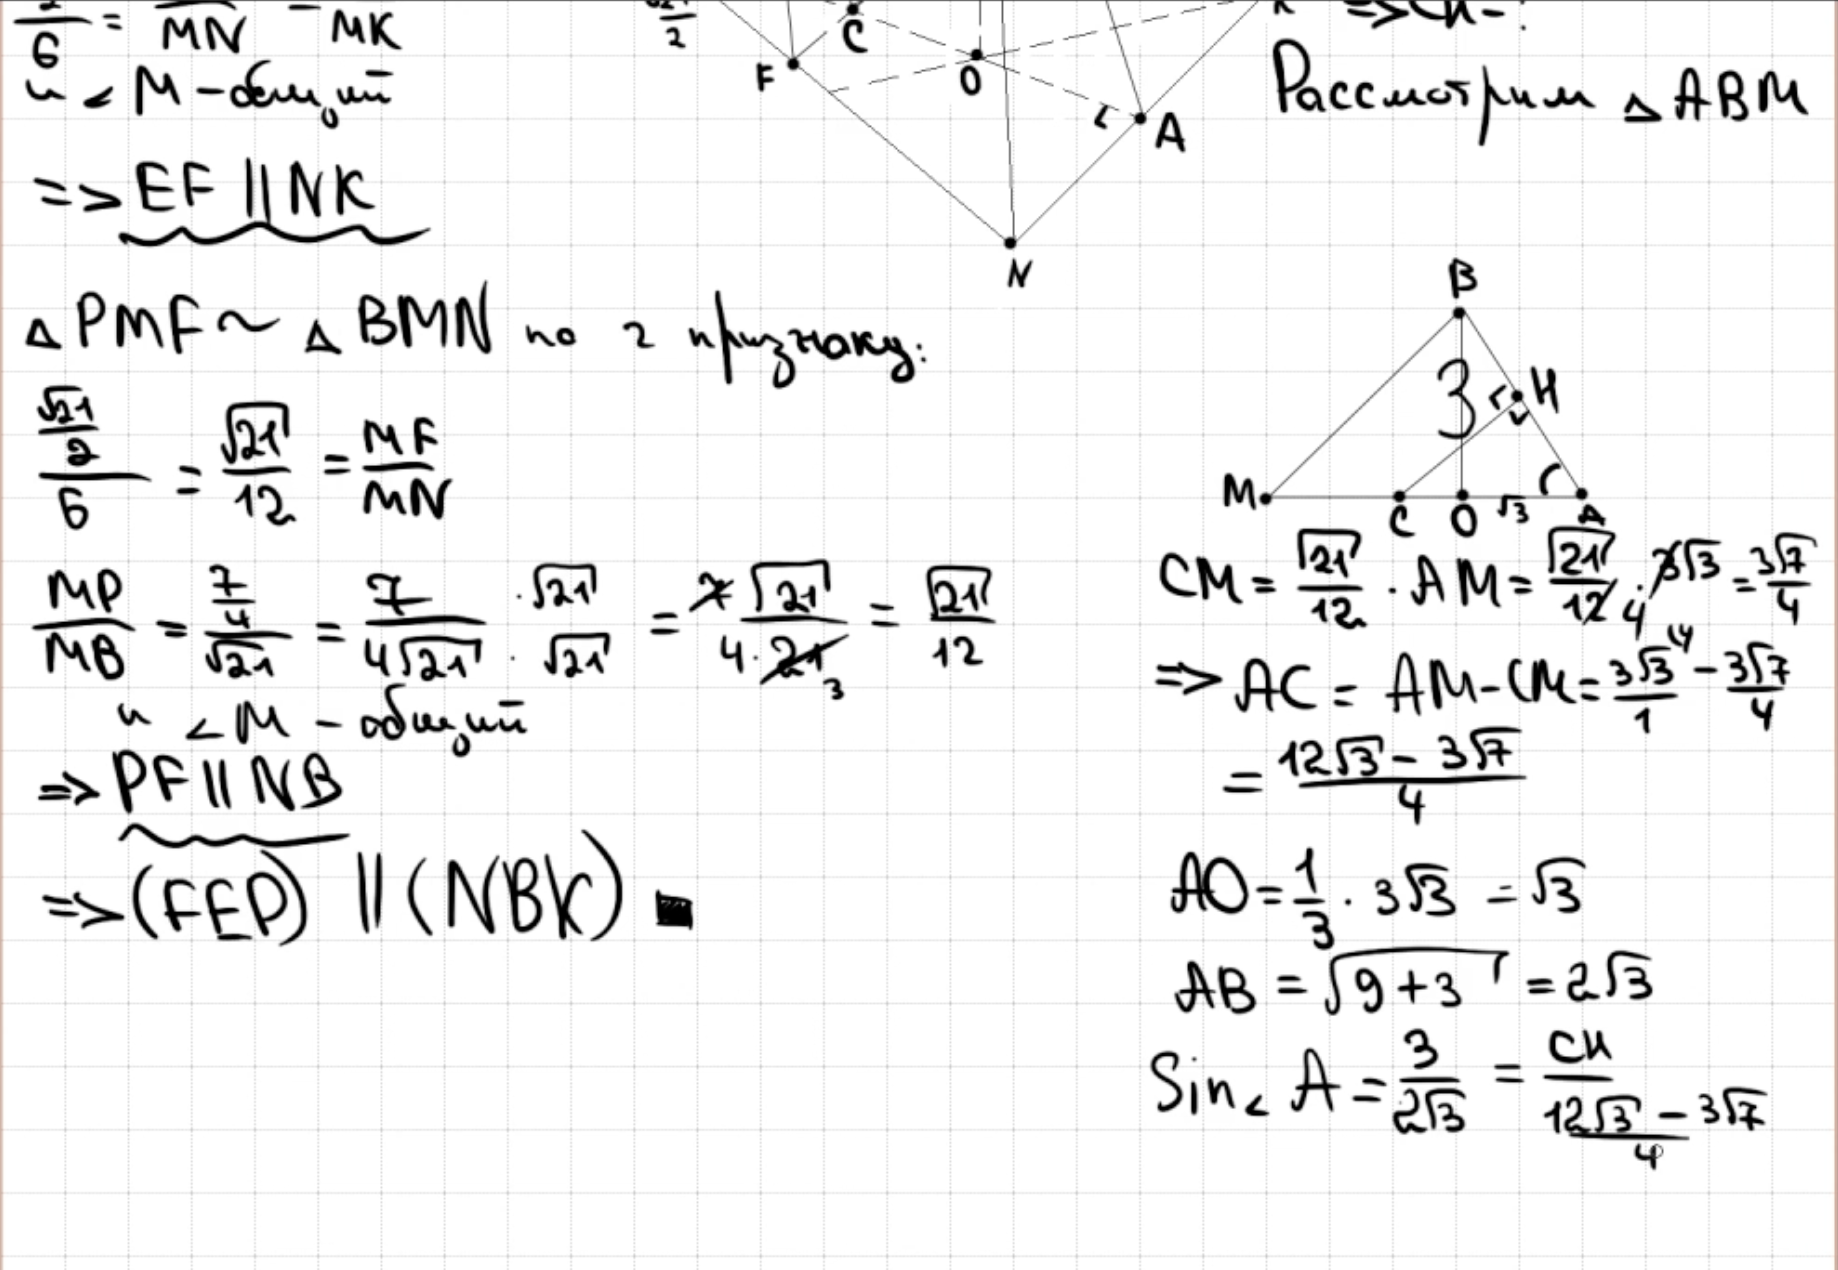 /6 = /MN = /MK
и ∠M - общий
=> EF || NK
△PMF ~ △BMN по 2 признаку:
(√21/2)/6 = √21/12 = MF/MN
MP/MB = (7/4)/√21 = 7/(4√21) · √21/√21 = 7√21/(4·21) 3 = √21/12
и ∠M - общий
=> PF || NB
=> (FEP) || (NBK) ■
√21/2
F
C
O
A
N
K
=> CH - ?
Рассмотрим △ABM
B
3
H
M
C
O
√3
A
CM = √21/12 · AM = √21/12 4 · 3√3 = 3√7/4
=> AC = AM - CM = 3√3/1 (4 - 3√7/4
= (12√3 - 3√7)/4
AO = 1/3 · 3√3 = √3
AB = √(9+3) = 2√3
Sin∠A = 3/(2√3) = CH/((12√3 - 3√7)/4)